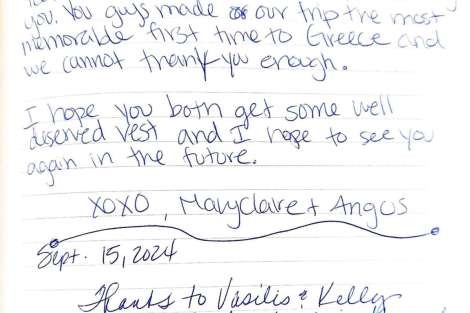 you. You guys made our trip the most
memorable first time to Greece and
we cannot thank you enough.
I hope you both get some well
diserved rest and I hope to see you
again in the future.
XOXO, Maryclaire + Angus
Sept. 15, 2024
Thanks to Vasilis & Kelly